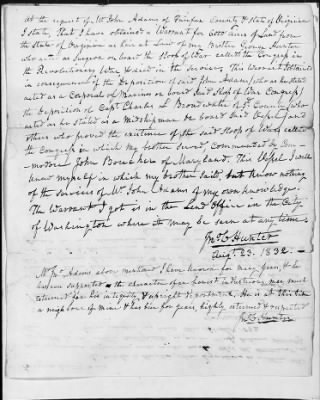 At the request of Mr. John Adams of Fairfax County & State of Virginia
I state, that I have obtained a Warrant for 6000 acres of Land from
the State of Virginia as heir at Law of my Brother George Hunter
who acted as Surgeon on board the Sloop of War called the Congress in
the Revolutionary War & died in the service. This Warrant I obtained
in consequence of the Deposition of said John Adams, who as he stated
acted as a Corporal of Marines on board said Sloop of War Congress,
the Deposition of Capt Charles L. Broadwater of sd. County, who
acted as he stated as a Midshipman on board said Vessel, and
others who proved the existence of the said Sloop of War called
the Congress in which my brother served, Commanded by Com-
-modore John Boucher of Maryland. This Vessel I well
knew myself in which my brother sailed, but know nothing
of the services of Mr. John Adams of my own knowledge.
The Warrant I got is in the Land Office in the City
of Washington where it may be seen at any time.
Jno. C Hunter
Augt. 23. 1832.
Mr. Jno. Adams above mentioned I have known for many years, & he
has ever supported the character of an honest industrious man, much
esteemed for his integrity, & upright deportment. He is at this time
a neighbour of mine & has been for years, highly esteemed & respected
Jno. C. Hunter